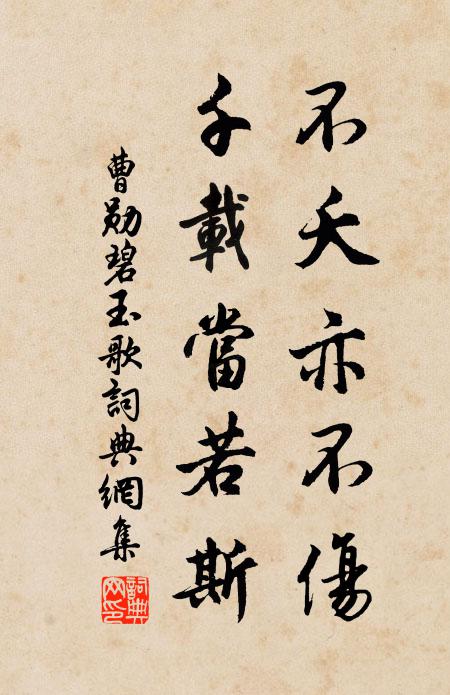 不夭亦不傷
千載當若斯
曹勛碧玉歌詞典網集
詞典網印